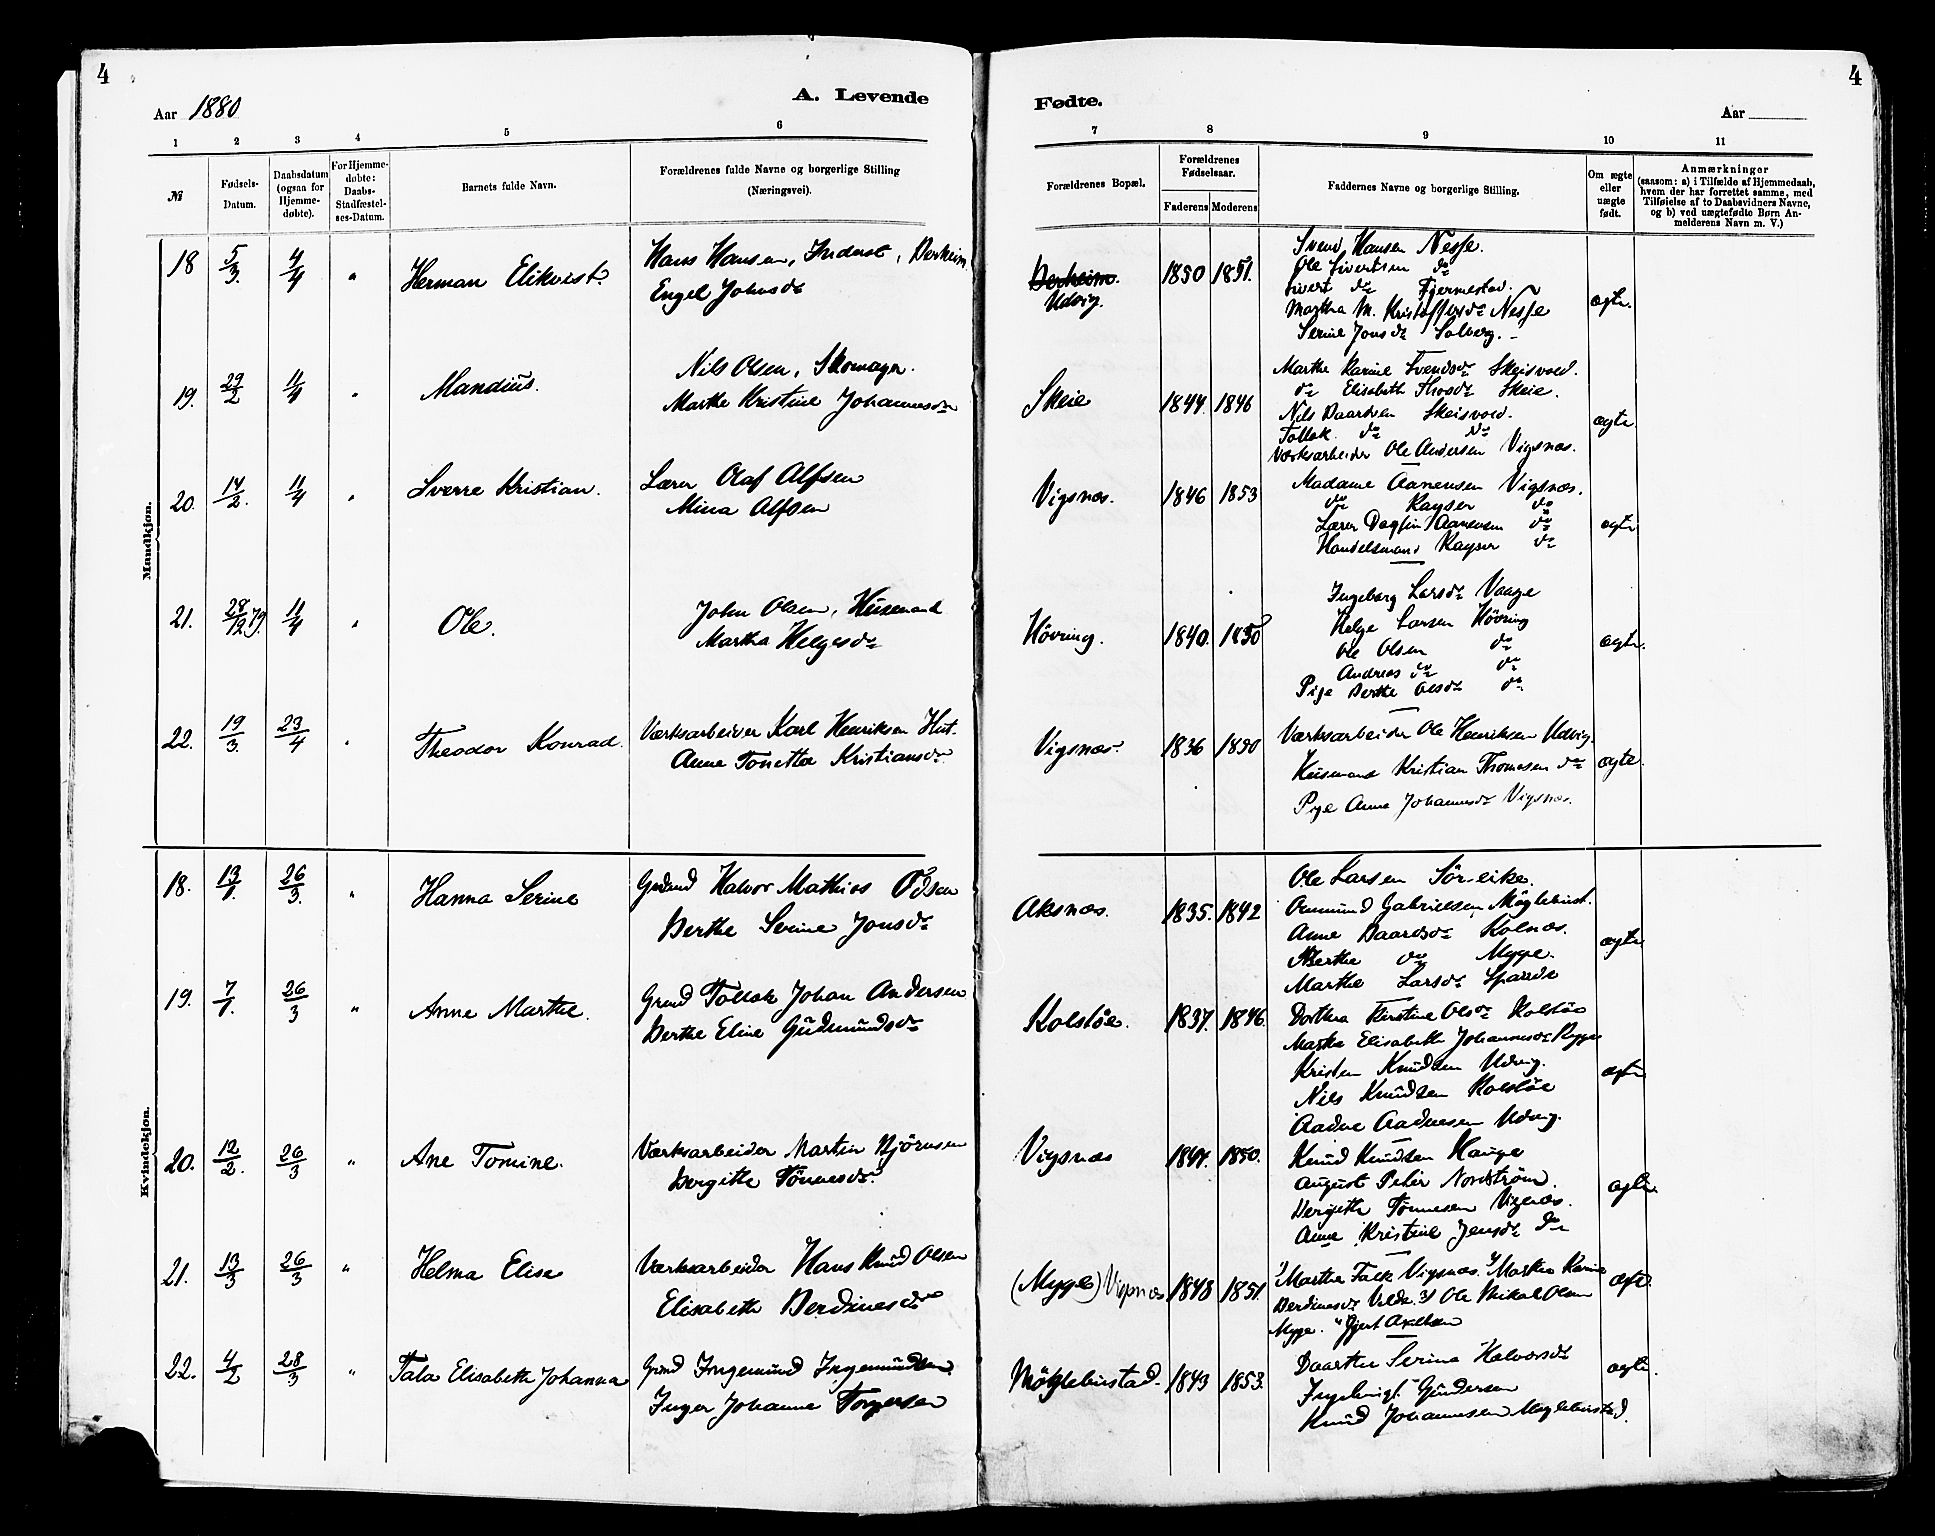 4
Aar 1880
A. Levende
1 2 3 4 5 6
№
Fødsels-Datum.
Daabsdatum (ogsaa for Hjemme-døbte).
For Hjemme-døbte: Daabs-Stadfæstel-ses-Datum.
Barnets fulde Navn.
Forældrenes fulde Navne og borgerlige Stilling (Næringsvei).
Mandkjøn.
18 5/3. 4/4 " Herman Elikvist. Hans Hansen, Inderst,
Engel Johnsdr
19. 29/2 11/4 " Mandius. Nils Olsen, Skomager.
Marthe Kristine Johannesdr
20. 14/2. 11/4 " Sverre Kristian. Lærer Olaf Alfsen
Mina Alfsen
21. 28/12 79. 11/4 " Ole. John Olsen, Husmand
Martha Helgesdr
22. 19/3. 23/4 " Theodor Konrad. Værksarbeider Karl Henriksen Hut.
Anne Tonette Kristiansdr
Kvindekjøn.
18. 13/1. 26/3. " Hanna Serine Halvor Mathias
Berthe Serine Jonsdr
19. 7/1. 26/3 " Anne Marthe. Grmd Tollak Johan Andersen
Berthe Eline Gudmundsdr
20. 12/2. 26/3 " Ane Tomine. Værksarbeider Martin Bjørnsen
Bergitte Tønnesdr
21. 13/3 26/3 " Helma Elise Værksarbeider Hans Knud Olsen
Elisabeth Berdinesdr
22. 4/2 28/3 " Tala Elisabeth Johanna Grmd Ingemund Ingemundsen
Inger Johanne Torgersen
4
Fødte.
Aar
7 8 9 10 11
Forældrenes Bopæl.
Forældrenes Fødselsaar.
Faderens Moderens
Faddernes Navne og borgerlige Stilling.
Om ægte eller uægte født.
Anmærkninger
(saasom: a) i Tilfælde af Hjemmedaab,
hvem der har forrettet samme, med
Tilføielse af to Daabsvidners Navne,
og b) ved uægtefødte Børn An-
melderens Navn m. V.)
Udvig. 1850 1851. Svend Hansen Nesse.
Ole Sivertsen do
Sivert do
Martha M. Kristoffersdr Nesse
Serine Jonsdr Solberg.
ægte.
Skeie 1844. 1846 Marthe Karine Svendsdr Skeisvold.
do Elisabeth Skeie.
Nils Baardsen Skeisvold.
Tollak do do
Værksarbeider Ole Andersen Vigsnæs.
ægte
Vigsnæs. 1846 1853 Madame Aanensen Vigsnæs.
do Kayser do
Lærer Dagfin Aanensen do
Handelsmand Kayser do
ægte
Høvring. 1840. 1850 Ingeborg Larsdr Vaage
Helge Larsen Høvring
Ole Olsen do
Andreas do do
Pige Berthe Olsdr do
ægte.
Vigsnæs 1836 1850 Værksarbeider Ole Henriksen Udvig.
Husmand Kristian Thomesen do
Pige Anne Johannesdr Vigsnæs.
ægte.
Aksnæs. 1835. 1842 Ole Larsen
Ommund Gabrielsen
Anne Baardsdr Kolnæs.
Berthe do Myge.
Marthe Larsdr
ægte
Kolstøe. 1837. 1846. Dorthea Kerstine Olsdr Kolstøe
Marta Elisabeth Johannesdr
Kristen Knudsen Udvig.
Nils Knudsen Kolstøe
Aadne Aadnesen Udvig.
ægte
Vigsnæs 1844. 1850. Knud Knudsen Hauge
August Peter Nordstrøm.
Bergithe Tønnesen Vigsnæs.
Anne Kristine Jensdr do
ægte.
(Myge) Vigsnæs 1848 1851. 1) Marthe Falk Vigsnæs. 2) Martha Karine
Berdinesdr 3) Ole Mikal Olsen
Myge. Gjert Axelsen
ægte
Møglebustad. 1843 1853. Serine Halvorsdr
Gundersen
Knud Johannesen Møglebustad.
ægte.